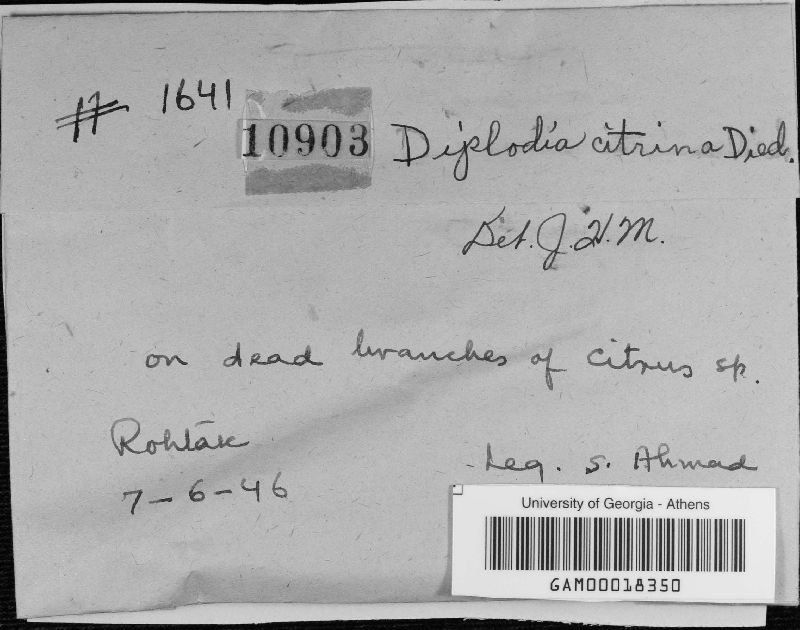 # 1641
10903 Diplodia citrina Died.
Det. J.H.M.
on dead branches of citrus sp.
Rohtak
Leg. S. Ahmad
7-6-46
University of Georgia - Athens
GAM00018350